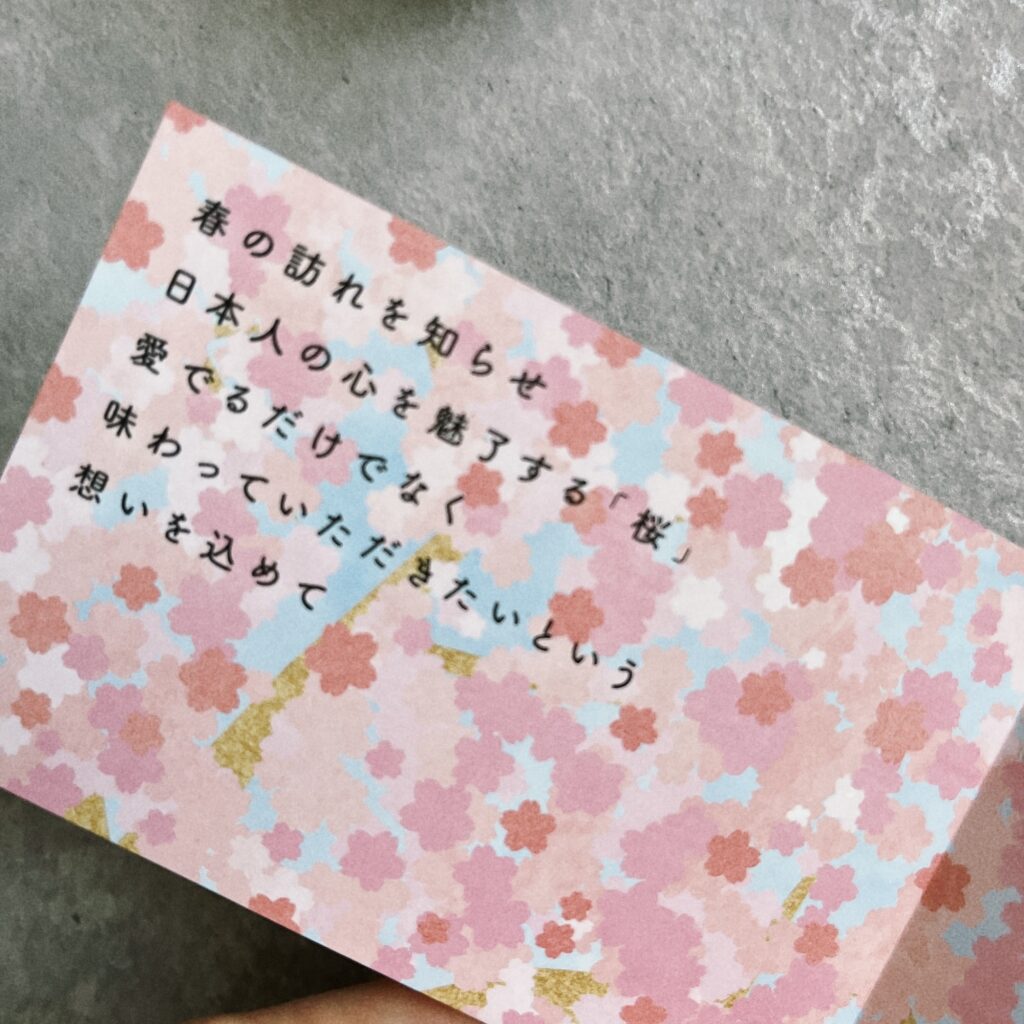 春の訪れを知らせ
日本人の心を魅了する「桜」
愛でるだけでなく
味わっていただきたいという
想いを込めて